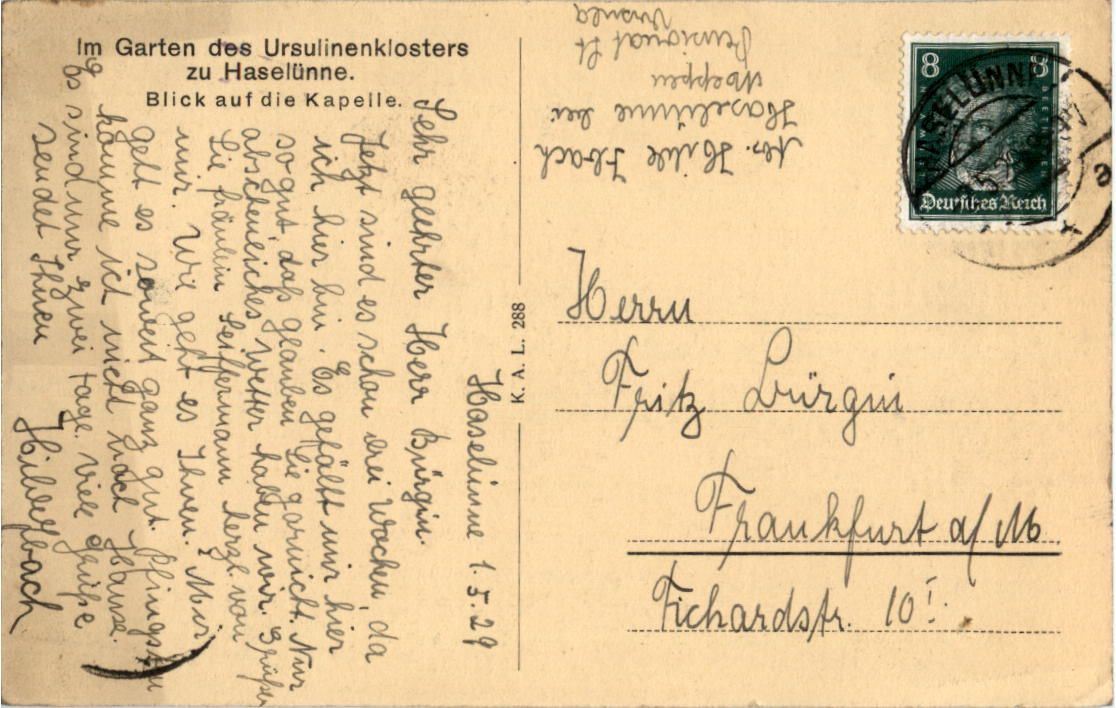 Im Garten des Ursulinenklosters
zu Haselünne.
Blick auf die Kapelle.
Haselünne 1.5.29
Sehr geehrter Herr Bürgin.
Jetzt sind es schon drei Wochen, da
ich hier bin. Es gefällt mir hier
so gut daß glauben Sie garnicht. Nur
abscheuliches Wetter haben wir. Grüßen
Sie fräulein Seiffermann herzl. von
mir. Wie geht es Ihnen. Mir
geht es soweit ganz gut. Pfingsten
komme ich nicht nach Hause.
Es sind nur zwei tage. Viele grüße
sendet Ihnen
Hilde Ibach
Abs. Hilde Ibach
Haselünne bei
Meppen
Pensionat St
Ursula
K. A. L. 288
8 8
Deutsches Reich
HASELÜNNE
a
Herrn
Fritz Bürgin
Frankfurt a/M
Fichardstr. 10 I.